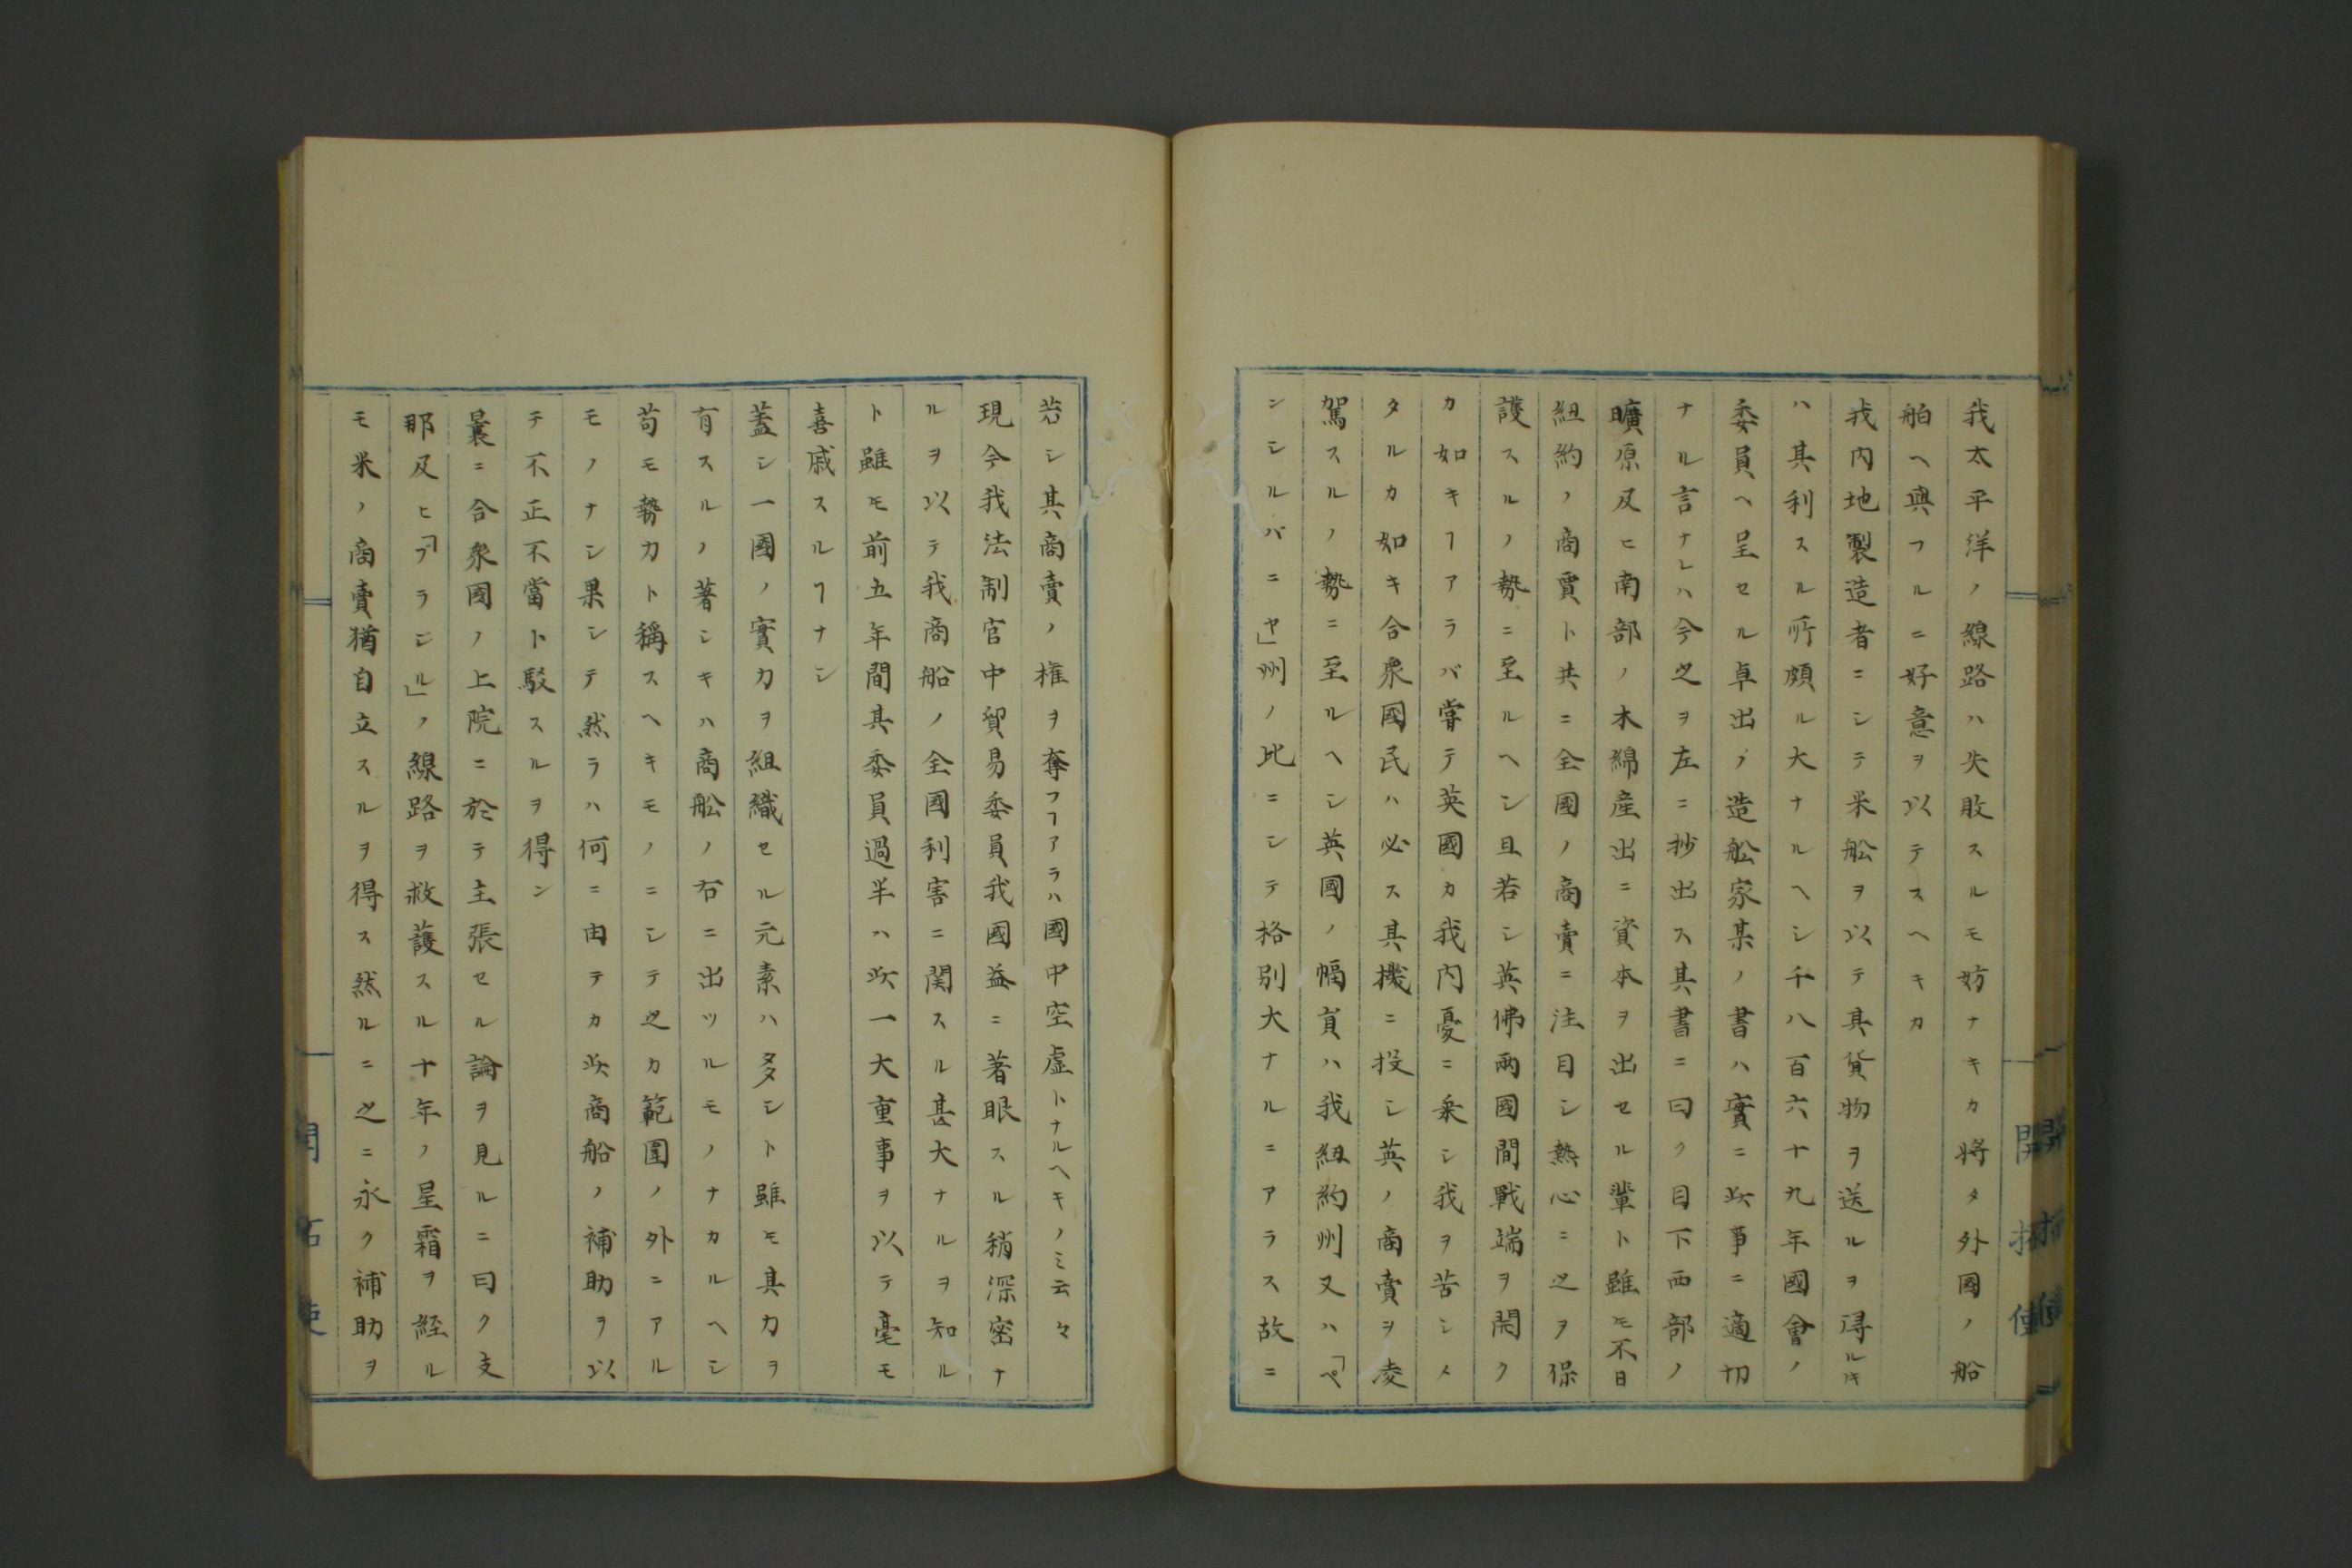 我太平洋ノ線路ハ失敗スルモ妨ナキカ將タ外國ノ船
舶ヘ與フルニ好意ヲ以テスヘキカ
我内地製造者ニシテ米舩ヲ以テ其貨物ヲ送ルヲ得ルキ
ハ其利スル所頗ル大ナルヘシ千八百六十九年國會ノ
委員ヘ呈セル卓出ノ造舩家某ノ書ハ實ニ此事ニ適切
ナル言ナレハ今之ヲ左ニ抄出ス其書ニ曰ク目下西部ノ
曠原及ヒ南部ノ木綿産出ニ資本ヲ出セル輩ト雖モ不日
紐約ノ商賈ト共ニ全國ノ商賣ニ注目シ熱心ニ之ヲ保
護スルノ勢ニ至ルヘシ且若シ英佛兩國間戰端ヲ開ク
カ如キヿアラバ嘗テ英國カ我内憂ニ乗シ我ヲ苦シメ
タルカ如キ合衆國民ハ必ス其機ニ投シ英ノ商賣ヲ凌
駕スルノ勢ニ至ルヘシ英國ノ幅員ハ我紐約州又ハ「ペ
ンシルバニヤ」州ノ比ニシテ格別大ナルニアラス故ニ
若シ其商賣ノ権ヲ奪フヿアラハ國中空虚トナルヘキノミ云々
現今我法制官中貿易委員我國益ニ著眼スル稍深密ナ
ルヲ以テ我商船ノ全國利害ニ関スル甚大ナルヲ知ル
ト雖モ前五年間其委員過半ハ此一大重事ヲ以テ毫モ
喜戚スルヿナシ
蓋シ一國ノ實力ヲ組織セル元素ハ多シト雖モ其力ヲ
有スルノ著シキハ商舩ノ右ニ出ツルモノナカルヘシ
苟モ勢力ト稱スヘキモノニシテ之カ範圍ノ外ニアル
モノナシ果シテ然ラハ何ニ由テカ此商船ノ補助ヲ以
テ不正不當ト駁スルヲ得ン
曩ニ合衆國ノ上院ニ於テ主張セル論ヲ見ルニ曰ク支
那及ヒ「ブラジル」ノ線路ヲ救護スル十年ノ星霜ヲ経ル
モ米ノ商賣猶自立スルヲ得ス然ルニ之ニ永ク補助ヲ
開拓使